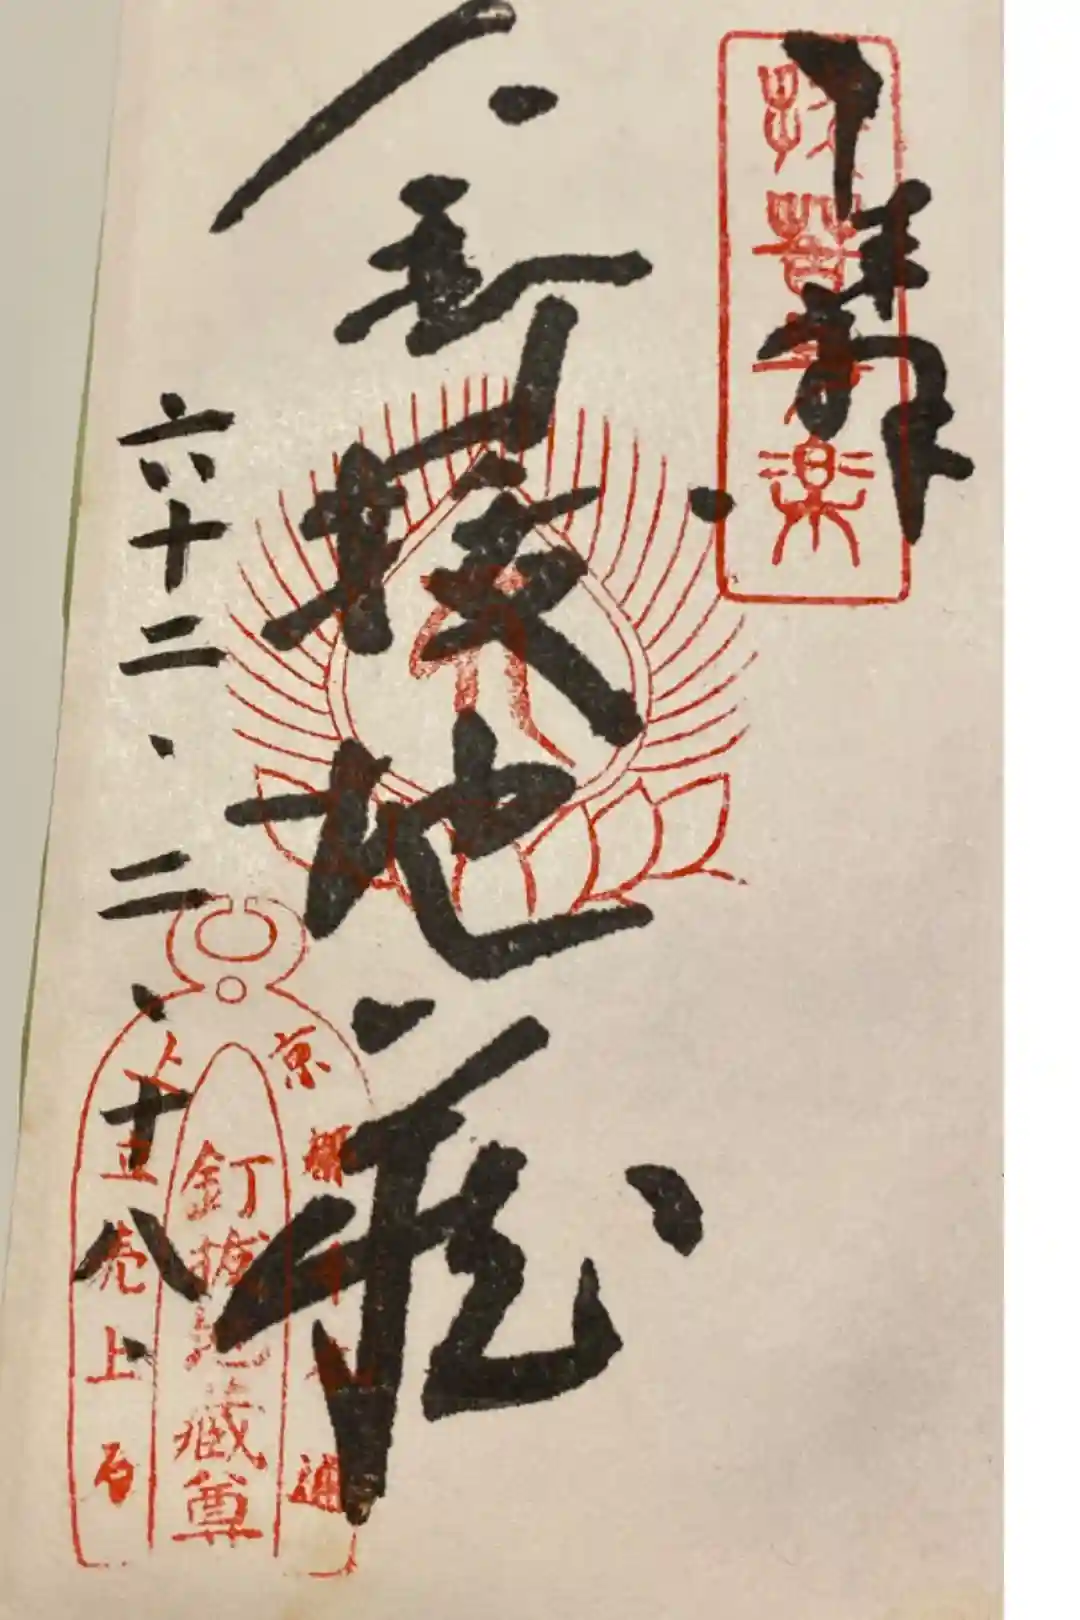 奉拝
抜苦与楽
釘抜地蔵
六十二・二・十八・
京都千本通
上立売上る
釘抜地蔵尊